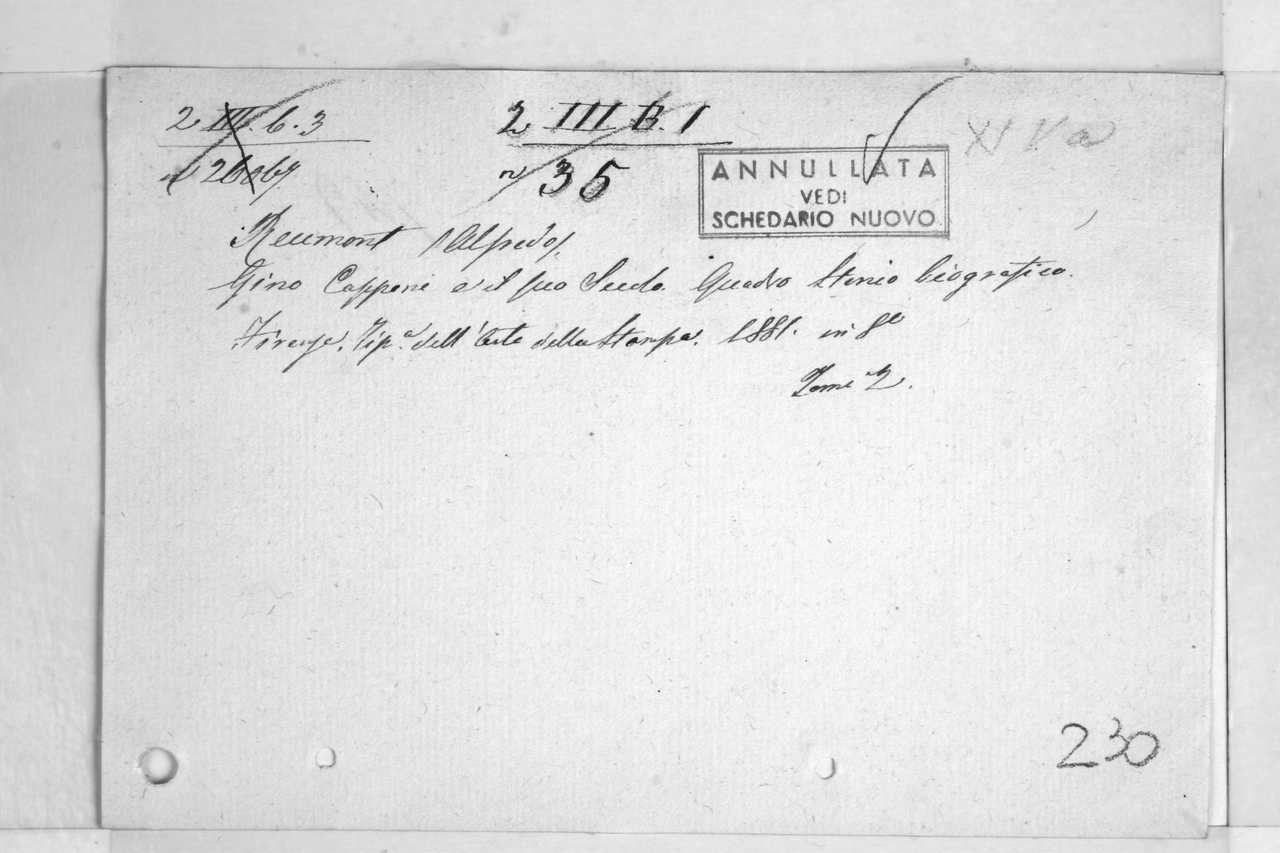 2 III. b. 3
2 III B. 1
XI V a
n 26067
n 35
ANNULLATA
VEDI
SCHEDARIO NUOVO
Reumont (Alfredo).
Gino Capponi e il suo Secolo. Quadro Storico biografico.
Firenze. Tip.a dell'Arte della Stampa. 1881. in 8o
Tomi 2.
230